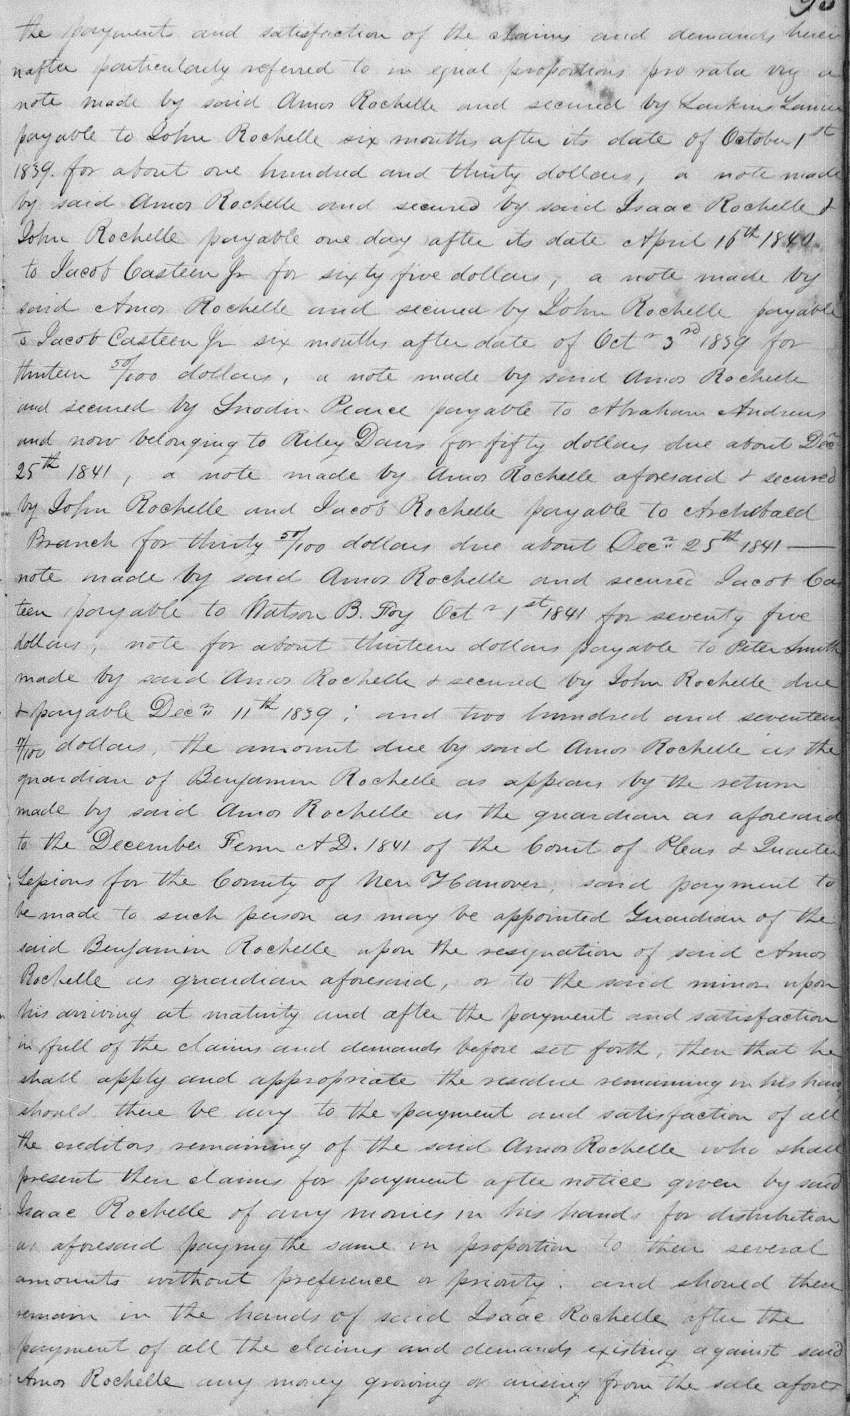 the payment and satisfaction of the claims and demands herei
nafter particularly referred to in equal proportions pro rata viz a
note made by said Amos Rochelle and secured by Larkins Lanier
payable to John Rochelle six months after its date of October 1st
1839. for about one hundred and thirty dollars, a note made
by said Amos Rochelle and secured by said Isaac Rochelle &
John Rochelle payable one day after its date April 16th 1840
to Jacob Casteen Jr for sixty five dollars, a note made by
said Amos Rochelle and secured by John Rochelle payable
to Jacob Casteen Jr six months after date of Octr 3rd 1839 for
thirteen 50/100 dollars, a note made by said Amos Rochelle
and secured by Pearce payable to Abraham Andrews
and now belonging to Riley Davis for fifty dollars due about Decr
25th 1841, a note made by Amos Rochelle aforesaid & secured
by John Rochelle and Jacob Rochelle payable to Archibald
Branch for thirty 50/100 dollars due about Decr 25th 1841 —
note made by said Amos Rochelle and secured Jacob Cas
teen payable to Watson B. Foy Octr 1st 1841 for seventy five
dollars, note for about thirteen dollars payable to Peter Smith
made by said Amos Rochelle & secured by John Rochelle due
& payable Decr 11th 1839; and two hundred and seventeen
/100 dollars, the amount due by said Amos Rochelle as the
guardian of Benjamin Rochelle as appears by the return
made by said Amos Rochelle as the guardian as aforesaid
to the December Term A.D. 1841 of the Court of Pleas & Quarter
Sessions for the County of New Hanover, said payment to
be made to such person as may be appointed Guardian of the
said Benjamin Rochelle upon the resignation of said Amos
Rochelle as guardian aforesaid, or to the said minor upon
his arriving at maturity and after the payment and satisfaction
in full of the claims and demands before set forth, then that he
shall apply and appropriate the residue remaining in his hands
should there be any to the payment and satisfaction of all
the creditors remaining of the said Amos Rochelle who shall
present their claims for payment after notice given by said
Isaac Rochelle of any monies in his hands for distribution
as aforesaid paying the same in proportion to their several
amounts without preference or priority. and should there
remain in the hands of said Isaac Rochelle after the
payment of all the claims and demands existing against said
Amos Rochelle any money growing or arising from the sale afore